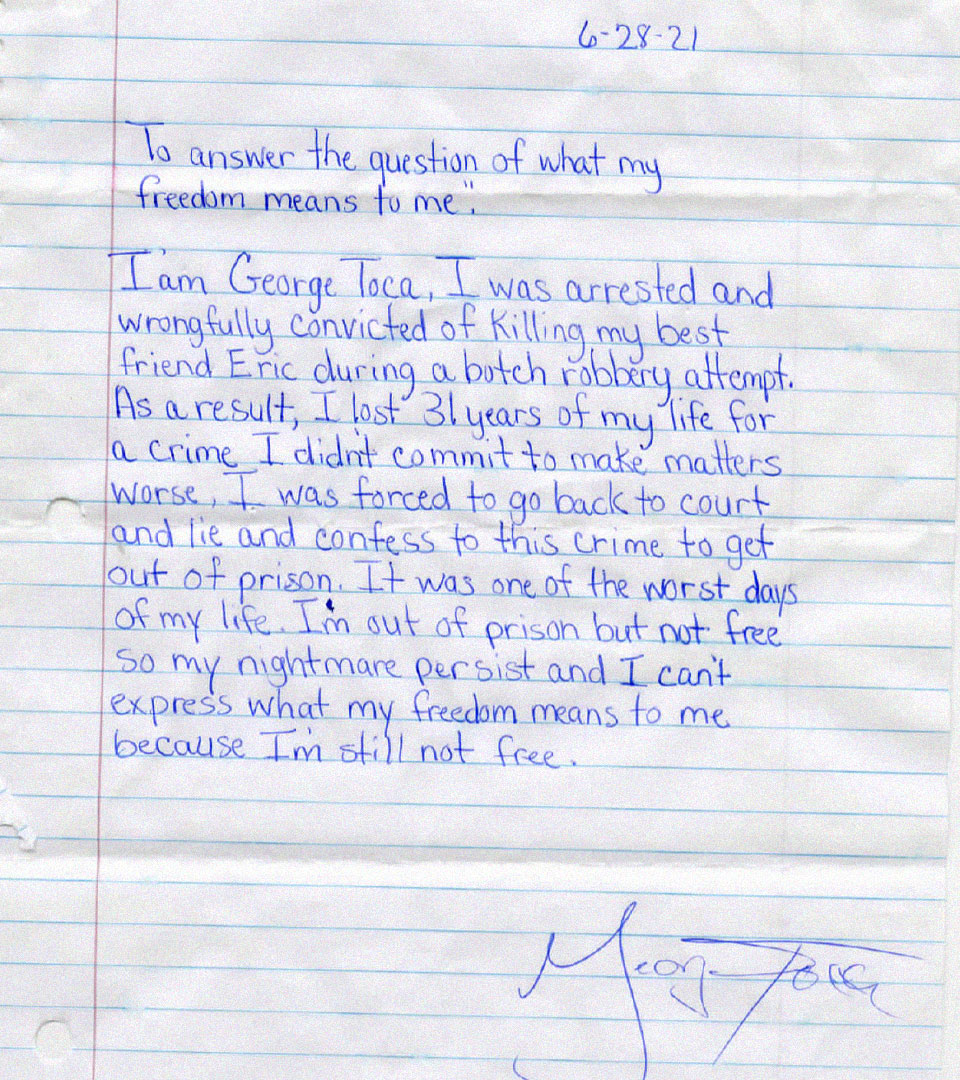 6-28-21
To answer the question of what my
freedom means to me".
I am George Toca, I was arrested and
wrongfully convicted of Killing my best
friend Eric during a botch robbery attempt.
As a result, I lost 31 years of my life for
a crime I didn't commit to make matters
worse, I was forced to go back to court
and lie and confess to this crime to get
out of prison. It was one of the worst days
of my life. I'm out of prison but not free
so my nightmare persist and I can't
express what my freedom means to me
because I'm still not free.
George Toca